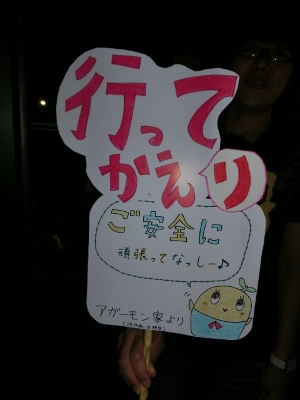 行って
かえり
ご安全に
頑張ってなっしー♪
アガーモン家より